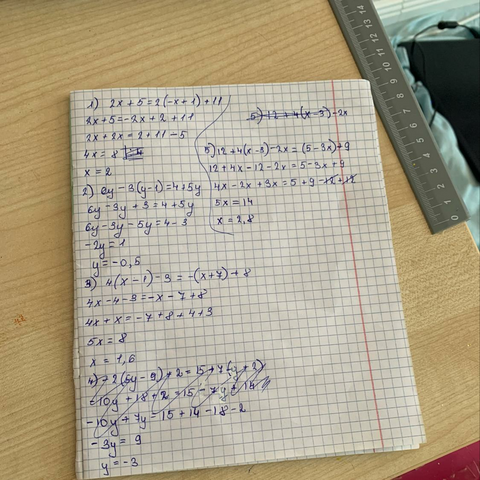 1) 2x+5=2(-x+1)+11
2x+5=-2x+2+11
2x+2x=2+11-5
4x=8
x=2
2) 6y-3(y-1)=4+5y
6y-3y+3=4+5y
6y-3y-5y=4-3
-2y=1
y=-0,5
3) 4(x-1)-3=-(x+7)+8
4x-4-3=-x-7+8
4x+x=-7+8+4+3
5x=8
x=1,6
4) -2(5y-9)+2=15+7(y+2)
-10y+18+2=15-7y+14
-10y+7y=15+14-18-2
-3y=9
y=-3
5) 12+4(x-3)-2x
5) 12+4(x-3)-2x=(5-3x)+9
12+4x-12-2x=5-3x+9
4x-2x+3x=5+9-12+12
5x=14
x=2,8
7 8 9 10 11 12 13 14